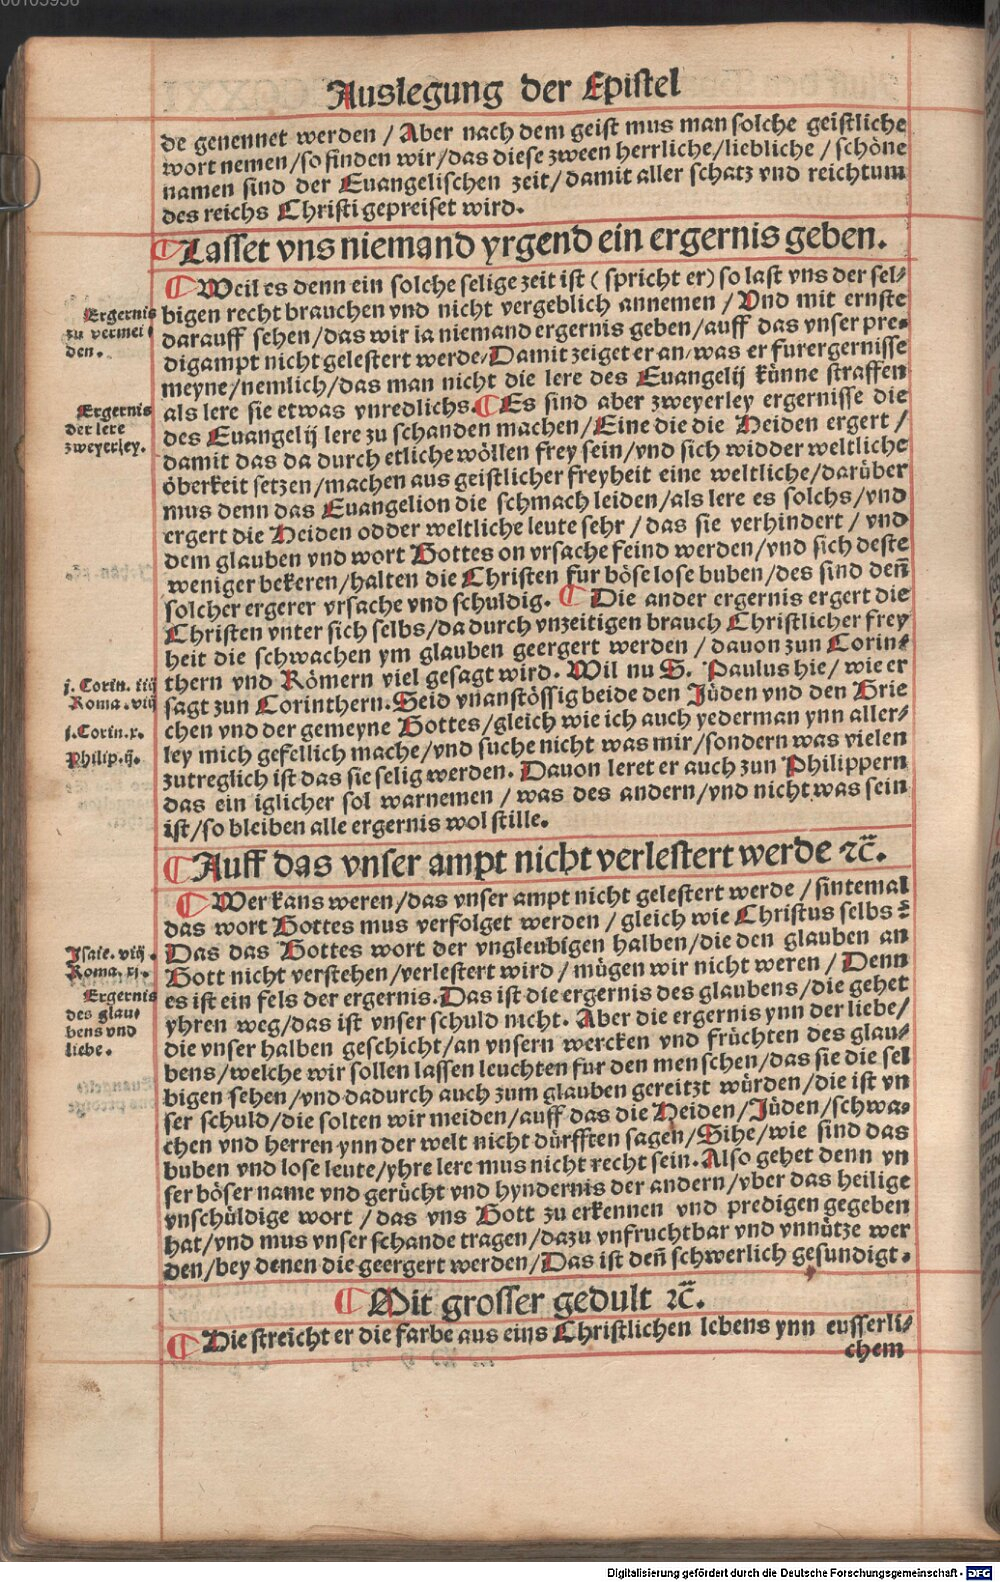 Auslegung der Epistel
de genennet werden / Aber nach dem geist mus man solche geistliche
wort nemen / so finden wir / das diese zween herrliche / liebliche / schöne
namen sind der Euangelischen zeit / damit aller schatz vnd reichtum
des reichs Christi gepreiset wird.
¶ Lasset vns niemand yrgend ein ergernis geben.
¶ Weil es denn ein solche selige zeit ist ( spricht er) so last vns der sel-
bigen recht brauchen vnd nicht vergeblich annemen / Vnd mit ernste
darauff sehen / das wir ia niemand ergernis geben / auff das vnser pre-
digampt nicht gelestert werde / Damit zeiget er an / was er fur ergernisse
meyne / nemlich / das man nicht die lere des Euangelij künne straffen
als lere sie etwas vnredlichs. ¶ Es sind aber zweyerley ergernisse die
des Euangelij lere zu schanden machen / Eine die die Heiden ergert /
damit das da durch etliche wöllen frey sein / vnd sich widder weltliche
öberkeit setzen / machen aus geistlicher freyheit eine weltliche / darüber
mus denn das Euangelion die schmach leiden / als lere es solchs / vnd
ergert die Heiden odder weltliche leute sehr / das sie verhindert / vnd
dem glauben vnd wort Gottes on vrsache feind werden / vnd sich deste
weniger bekeren / halten die Christen fur böse lose buben / des sind deñ
solcher ergerer vrsache vnd schuldig. ¶ Die ander ergernis ergert die
Christen vnter sich selbs / da durch vnzeitigen brauch Christlicher frey
heit die schwachen ym glauben geergert werden / dauon zun Corin-
thern vnd Römern viel gesagt wird. Wil nu S. Paulus hie / wie er
sagt zun Corinthern. Seid vnanstössig beide den Jüden vnd den Grie
chen vnd der gemeyne Gottes / gleich wie ich auch yederman ynn aller-
ley mich gefellich mache / vnd suche nicht was mir / sondern was vielen
zutreglich ist das sie selig werden. Dauon leret er auch zun Philippern
das ein iglicher sol warnemen / was des andern / vnd nicht was sein
ist / so bleiben alle ergernis wol stille.
¶ Auff das vnser ampt nicht verlestert werde ꝛc̃.
¶ Wer kans weren / das vnser ampt nicht gelestert werde / sintemal
das wort Gottes mus verfolget werden / gleich wie Christus selbs ?
Das das Gottes wort der vngleubigen halben / die den glauben an
Gott nicht verstehen / verlestert wird / mügen wir nicht weren / Denn
es ist ein fels der ergernis. Das ist die ergernis des glaubens / die gehet
yhren weg / das ist vnser schuld nicht. Aber die ergernis ynn der liebe /
die vnser halben geschicht / an vnsern wercken vnd früchten des glau-
bens / welche wir sollen lassen leuchten fur den menschen / das sie die sel
bigen sehen / vnd dadurch auch zum glauben gereitzt würden / die ist vn
ser schuld / die solten wir meiden / auff das die Heiden / Jüden / schwa-
chen vnd herren ynn der welt nicht dürfften sagen / Sihe / wie sind das
buben vnd lose leute / yhre lere mus nicht recht sein. Also gehet denn vn
ser böser name vnd gerücht vnd hyndernis der andern / vber das heilige
vnschüldige wort / das vns Gott zu erkennen vnd predigen gegeben
hat / vnd mus vnser schande tragen / dazu vnfruchtbar vnd vnnütze wer
den / bey denen die geergert werden / Das ist deñ schwerlich gesundigt.
¶ Mit grosser gedult ꝛc̃.
¶ Hie streicht er die farbe aus eins Christlichen lebens ynn eusserli-
chem
Ergernis
zu vermei-
den.
Ergernis
der lere
zweyerley.
j. Corin. iiij
Roma. viij
j. Corin. x.
Philip. ij.
Isaie. viij.
Roma. xj.
Ergernis
des glau-
bens vnd
liebe.
Digitalisierung gefördert durch die Deutsche Forschungsgemeinschaft - DFG